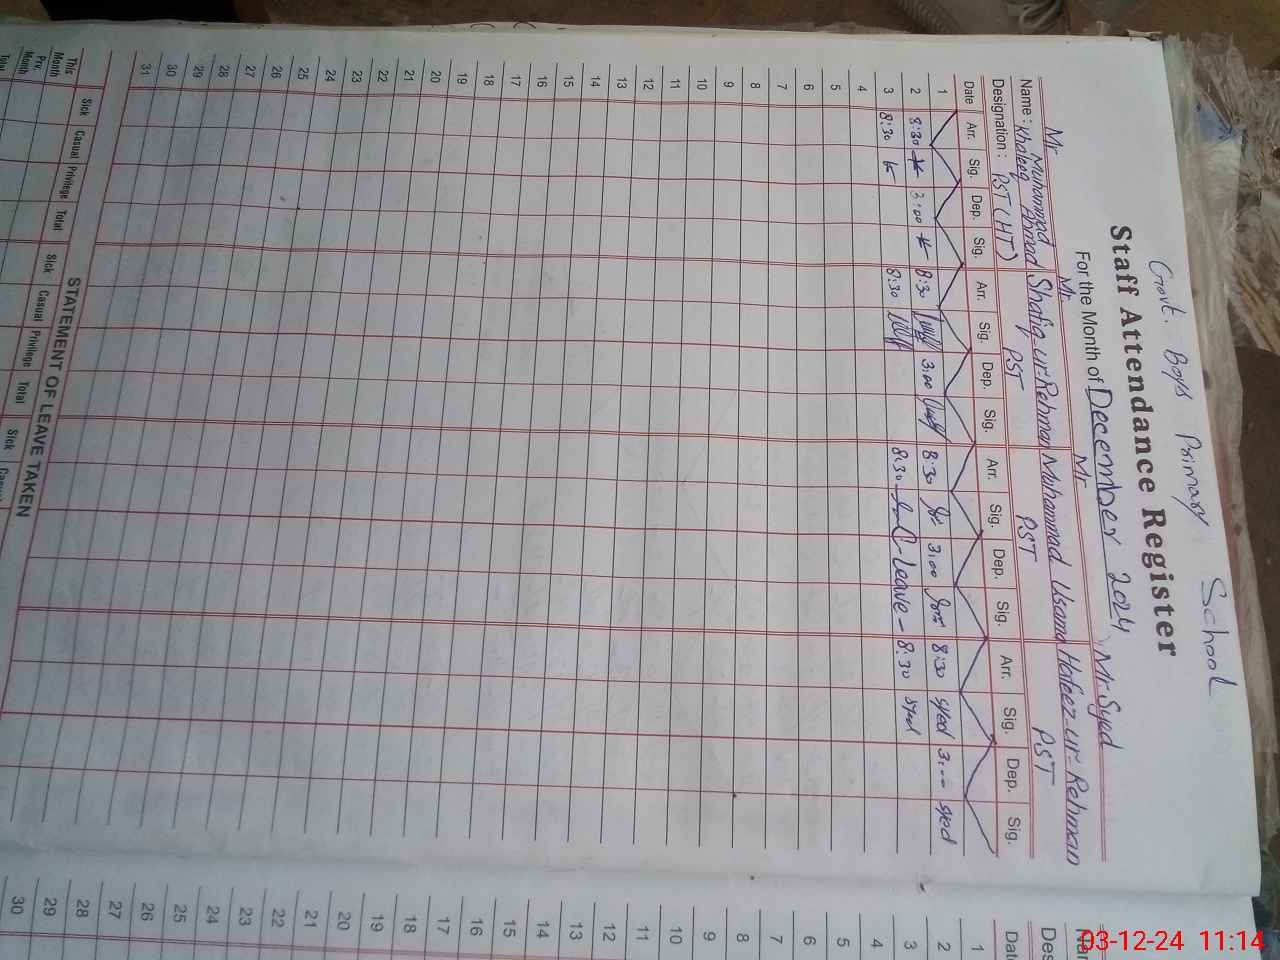 Govt. Boys Primary School
Staff Attendance Register
For the Month of December 2024
Name : Mr Muhammad Khaleeq Ahmad Mr Shafiq-ur-Rehman Mr Muhammad Usama Mr Syed Hafeez-ur-Rehman
Designation : PST (HT) PST PST PST
Date Arr. Sig. Dep. Sig. Arr. Sig. Dep. Sig. Arr. Sig. Dep. Sig. Arr. Sig. Dep. Sig.
1
2 8:30 3:00 8:30 3:00 8:30 3:00 8:30 syed 3:00 syed
3 8:30 8:30 8:30 leave 8:30 syed
4
5
6
7
8
9
10
11
12
13
14
15
16
17
18
19
20
21
22
23
24
25
26
27
28
29
30
31
STATEMENT OF LEAVE TAKEN
Sick Casual Privilege Total Sick Casual Privilege Total Sick
This Month
Prv. Month
Total
Date
1
2
3
4
5
6
7
8
9
10
11
12
13
14
15
16
17
18
19
20
21
22
23
24
25
26
27
28
29
30
03-12-24 11:14